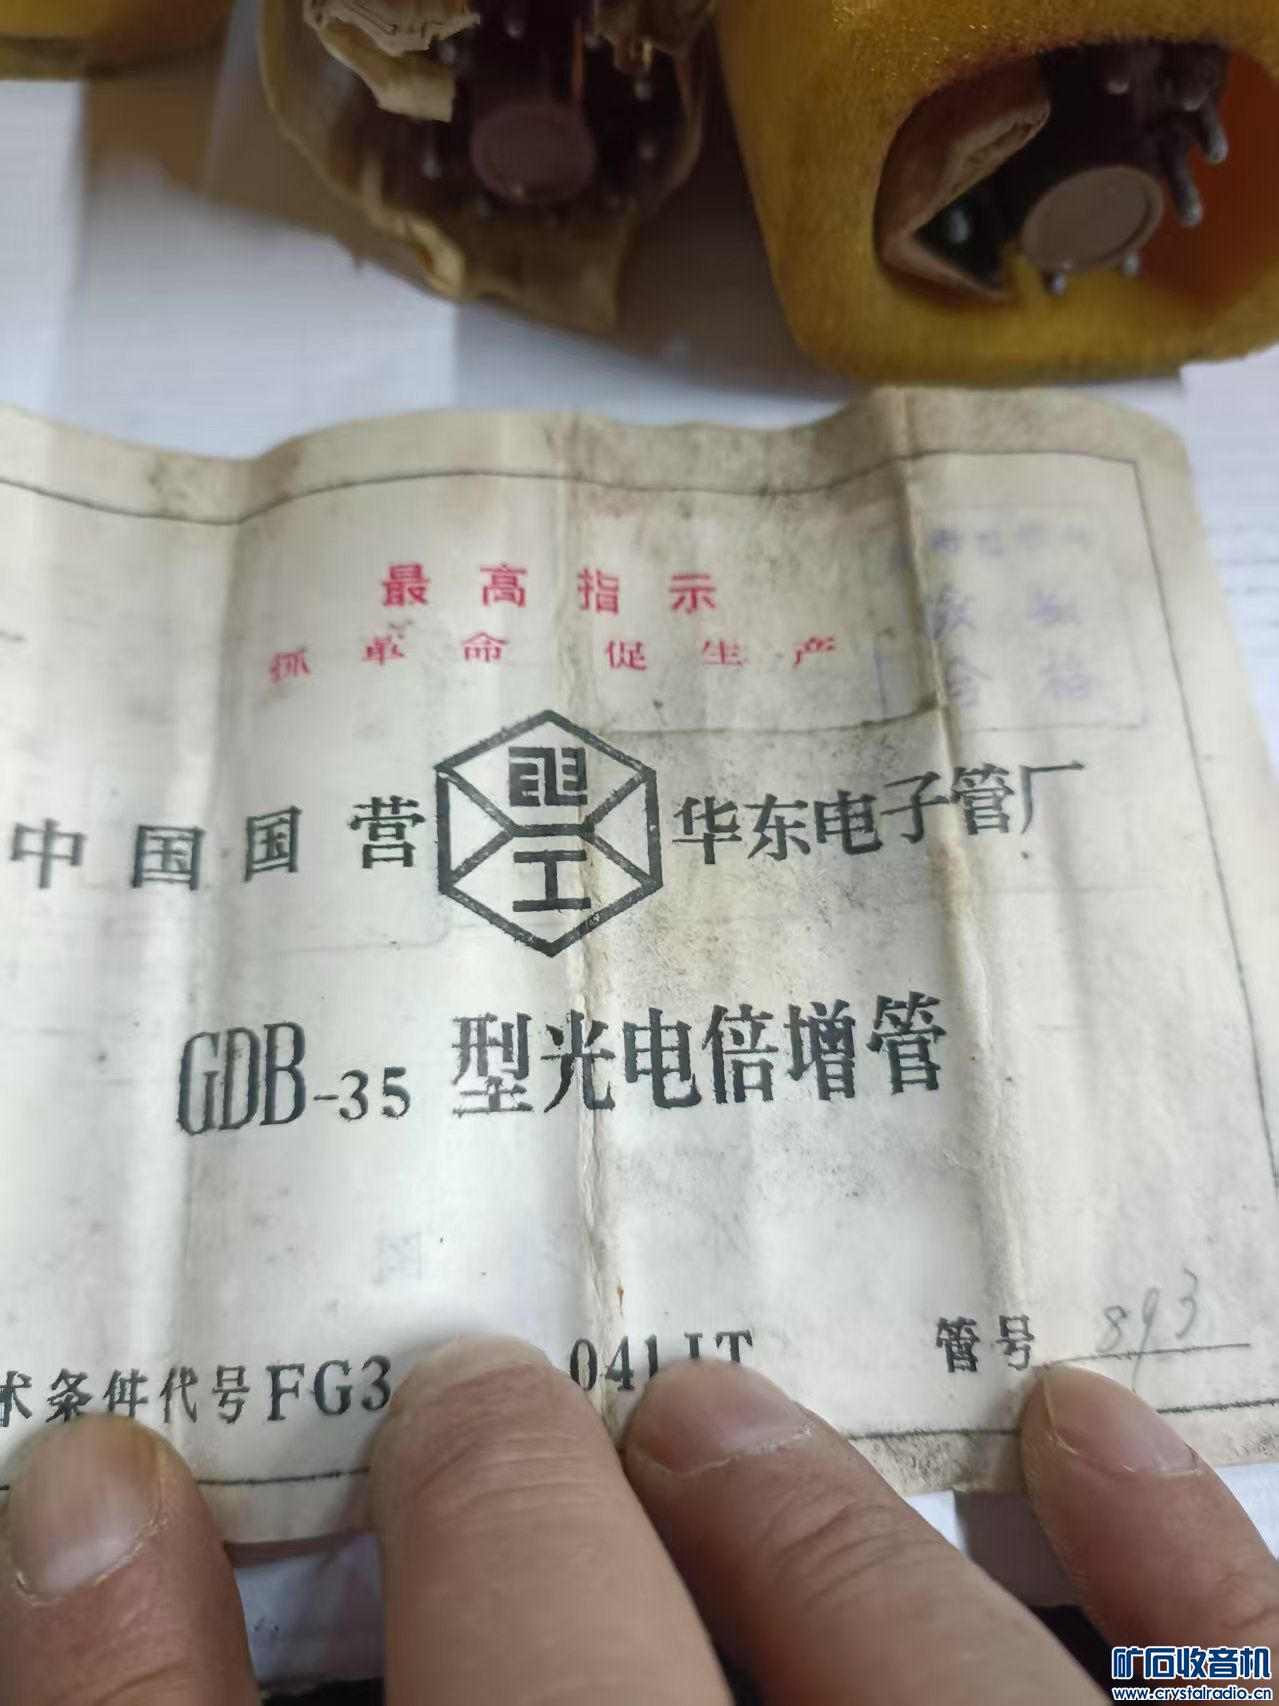 最高指示
抓革命 促生产
合格
中国国营 华东电子管厂
GDB-35 型光电倍增管
术条件代号FG3 041JT 管号 893
矿石收音机
www.crystalradio.cn